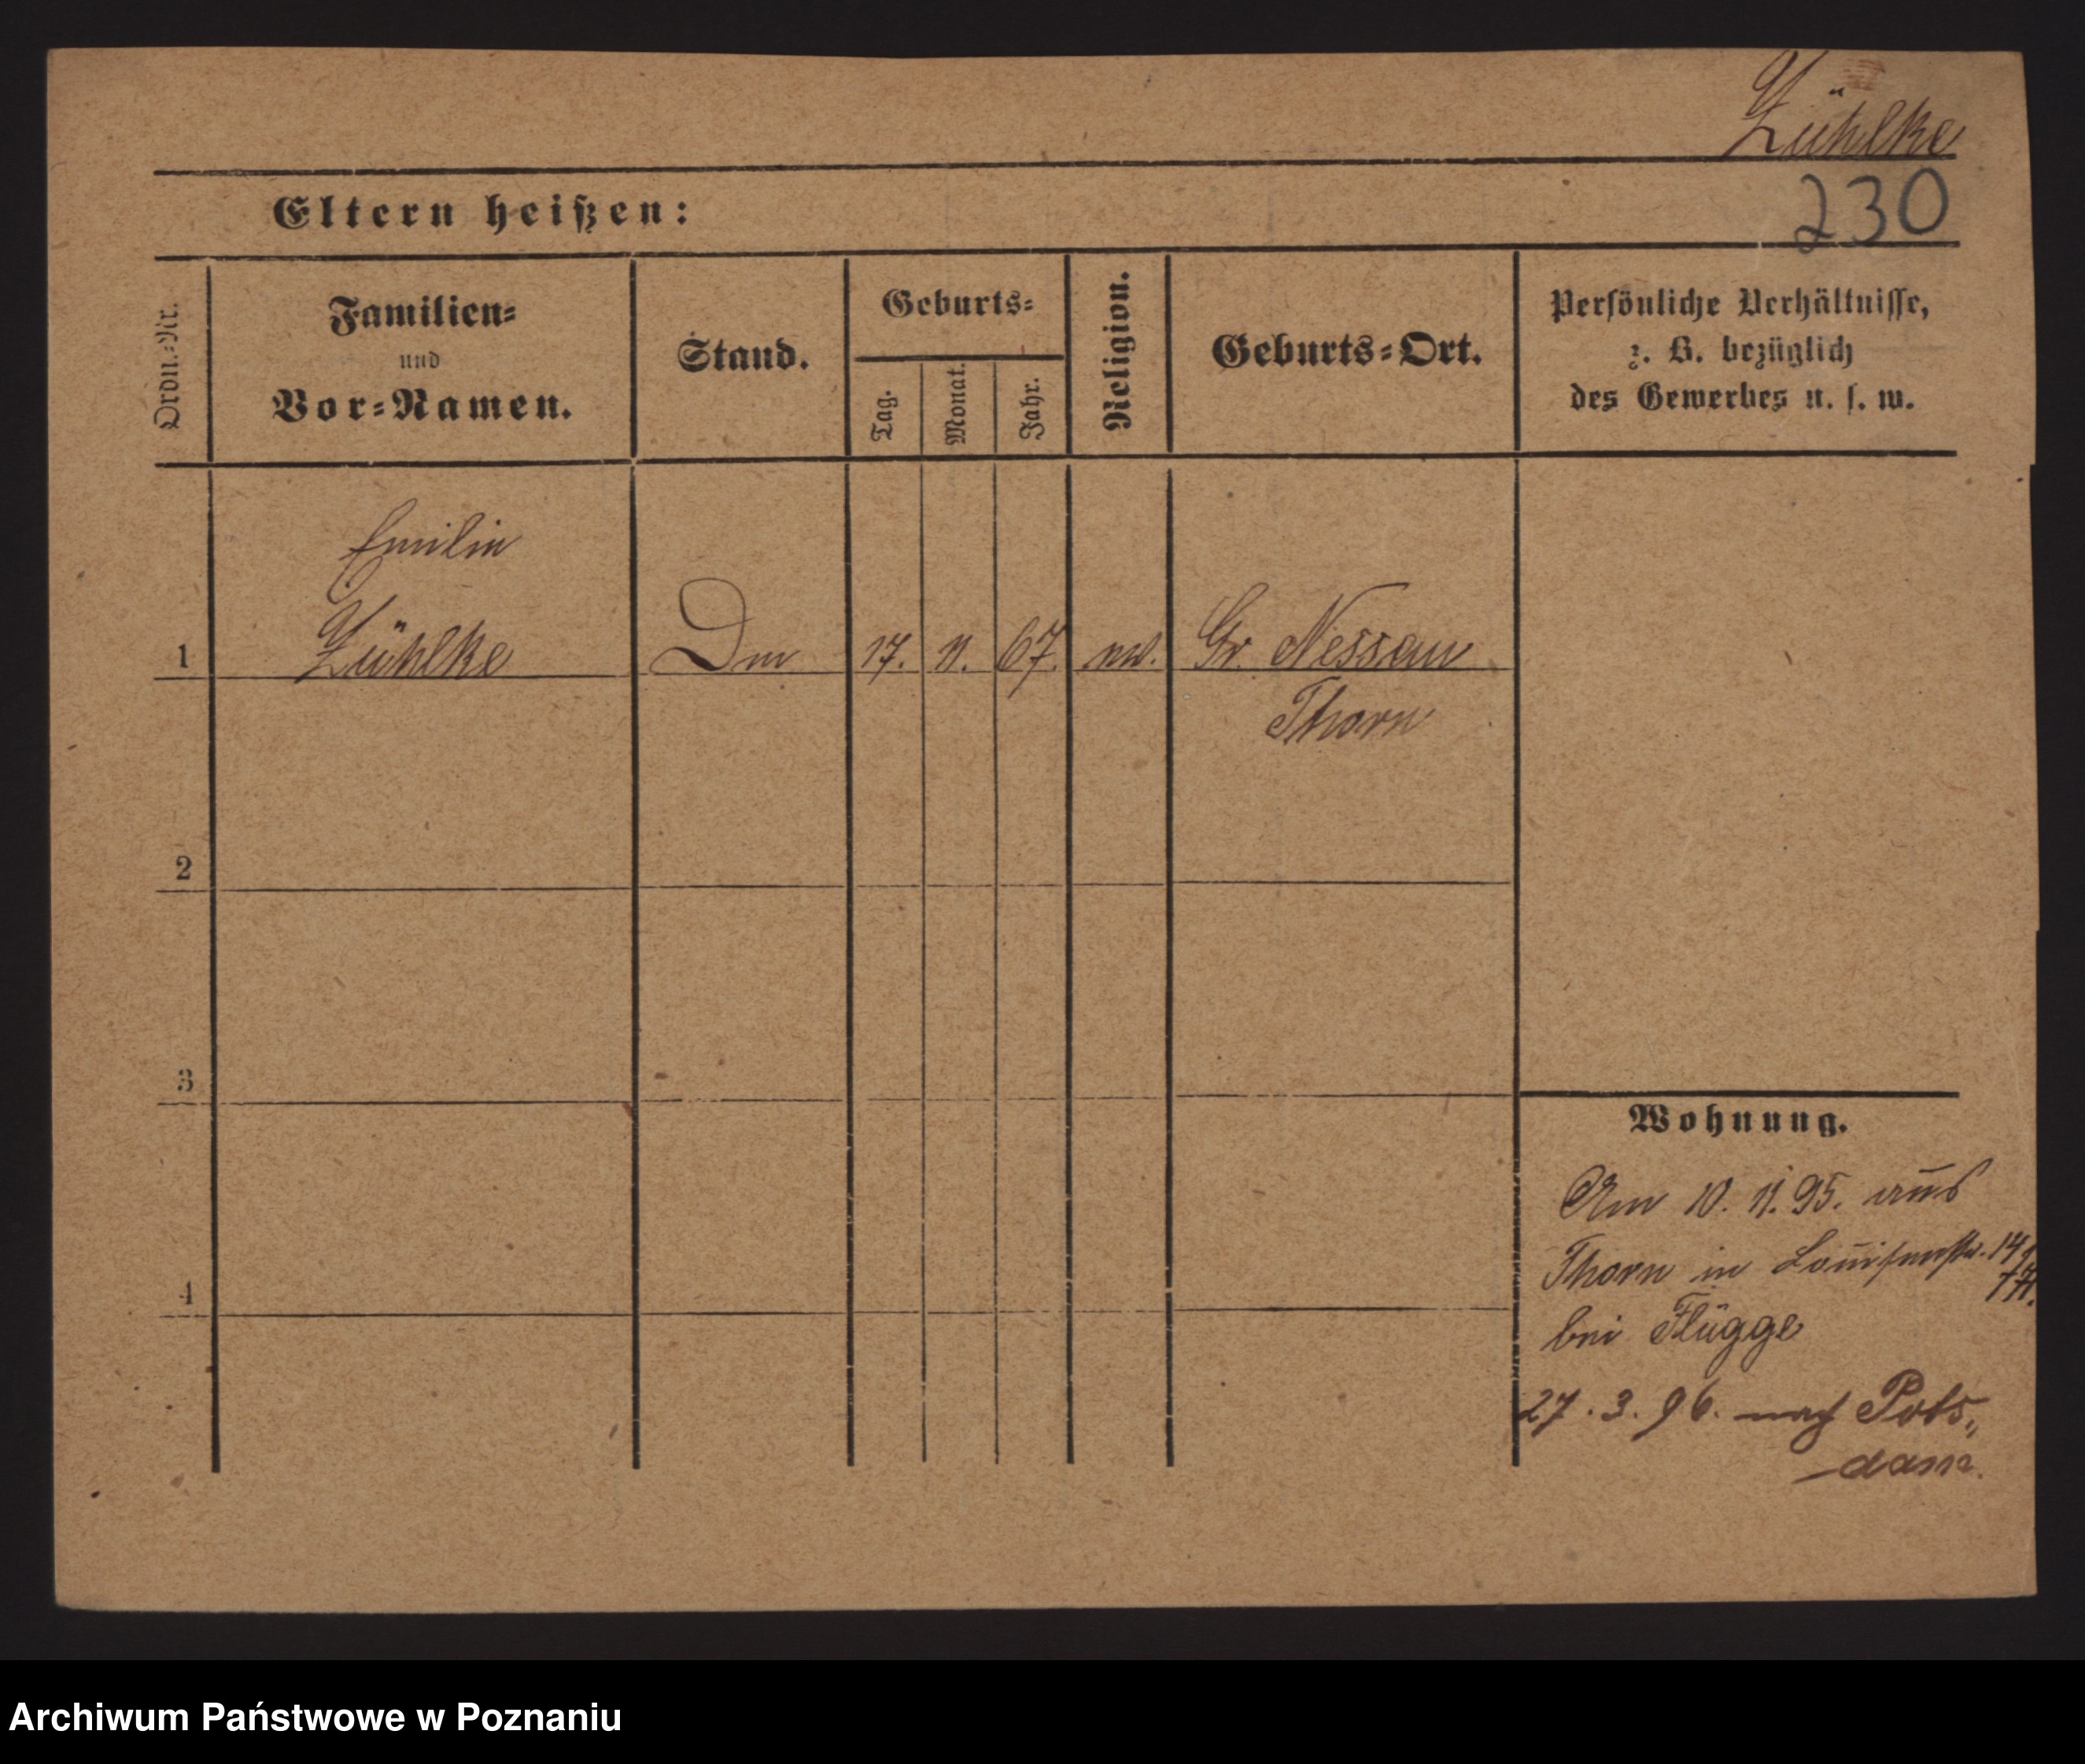 Zühlke
Eltern heißen:
230
Ordn.=Nr.
Familien=
und
Vor=Namen.
Stand.
Geburts=
Tag.
Monat.
Jahr.
Religion.
Geburts=Ort.
Persönliche Verhältnisse,
z. B. bezüglich
des Gewerbes u. s. w.
Emilie
1 Zühlke Dm 17. 11. 67. ev. Gr. Nessau
Thorn
2
3
4
Wohnung.
Am 10. 11. 95. aus
Thorn in Louisenstr. 14
bei Flügge
27. 3. 96. nach Pots„
dam.
Archiwum Państwowe w Poznaniu